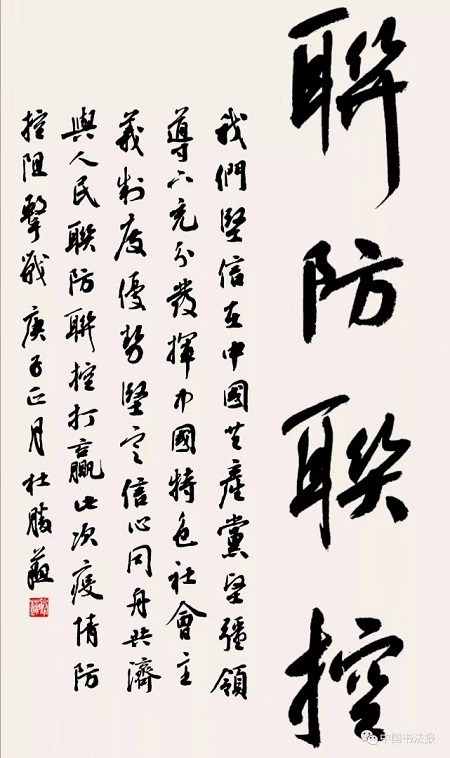 聯防聯控
我們堅信在中國共產黨堅彊領
導下充分發揮中國特色社會主
義制度優勢堅定信心同舟共濟
與人民聯防聯控打贏此次疫情防
控阻擊戰庚子正月杜勝
中国书法报